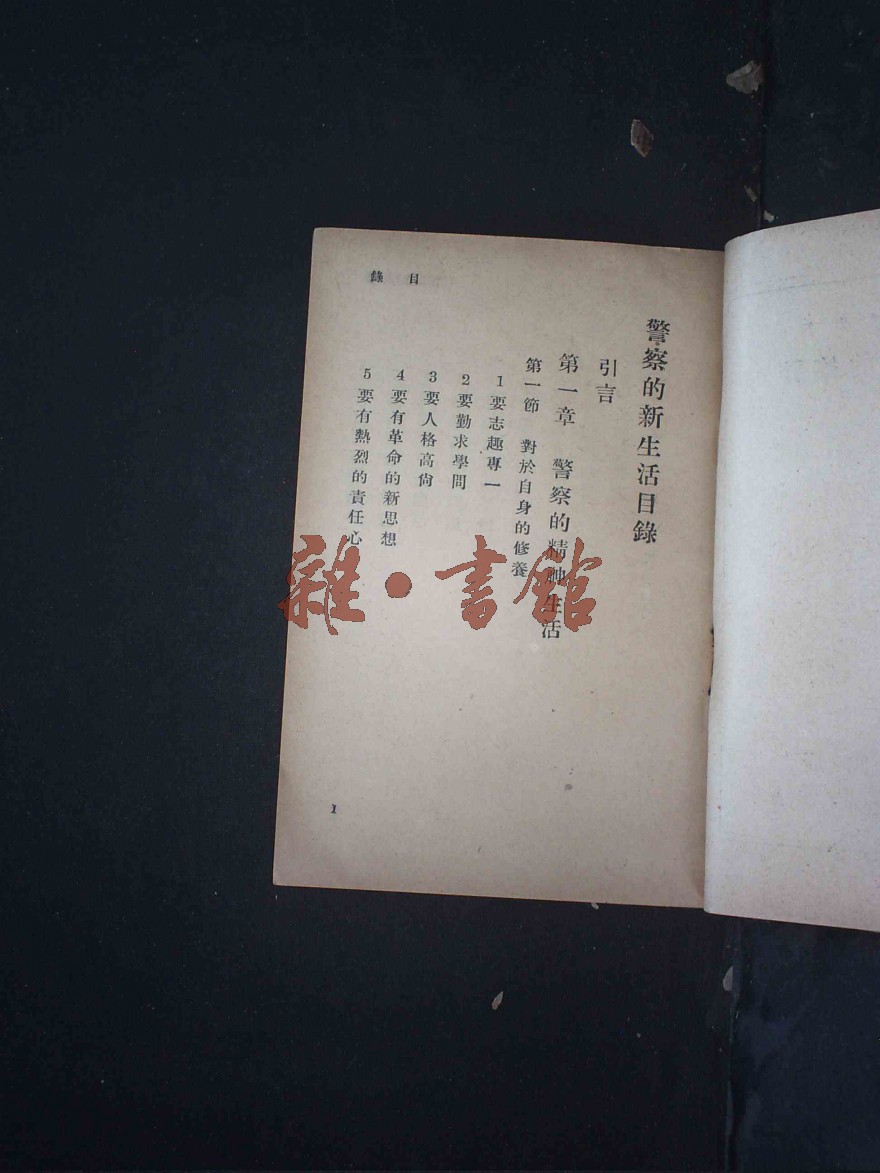 目錄
警察的新生活目錄
引言
第一章 警察的精神生活
第一節 對於自身的修養
1 要志趣專一
2 要勤求學問
3 要人格高尙
4 要有革命的新思想
5 要有熱烈的責任心
1
雜·書館